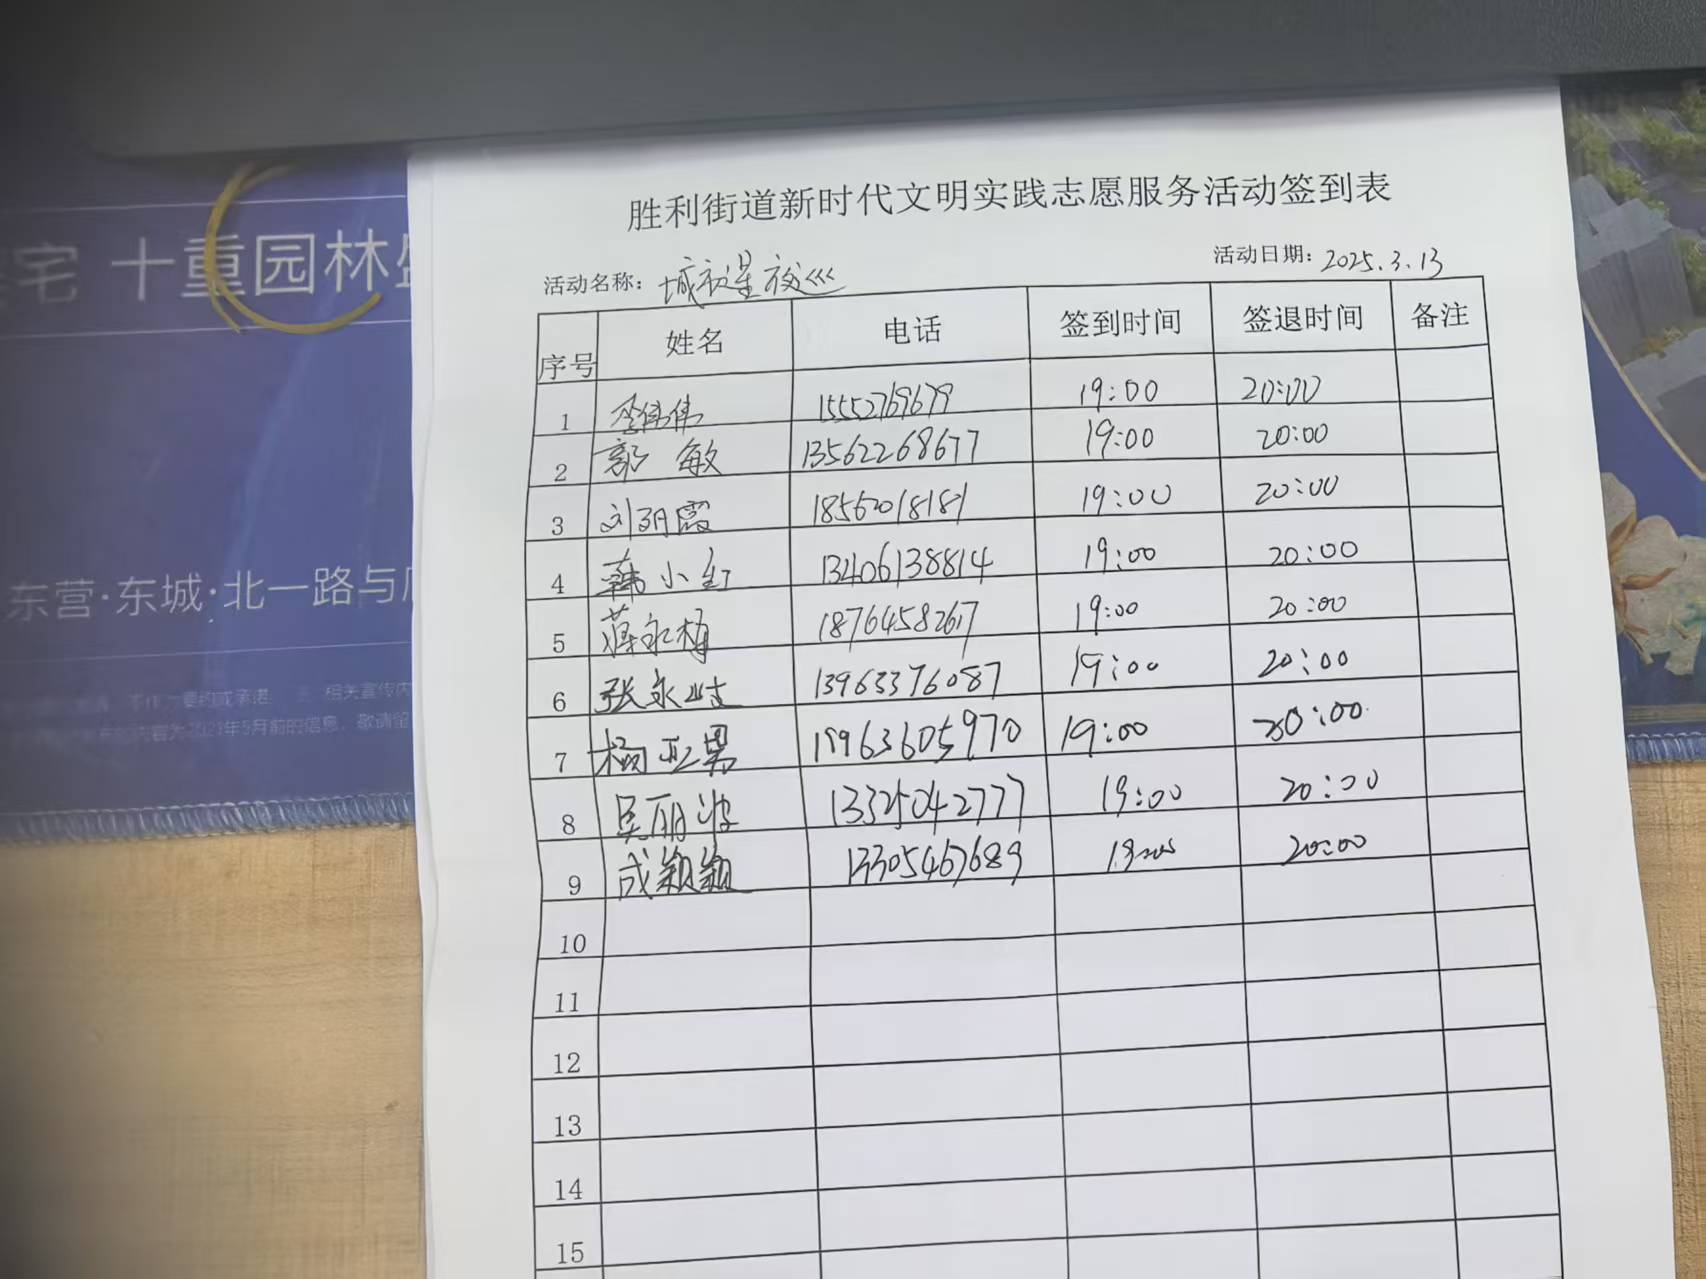 宅 十重园林
东营·东城·北一路与
胜利街道新时代文明实践志愿服务活动签到表
活动名称： 活动日期：2025.3.13
序号 姓名 电话 签到时间 签退时间 备注
1 李伟伟 15552769679 19:00 20:00
2 郭敏 13562268677 19:00 20:00
3 刘玥霞 18562018181 19:00 20:00
4 韩小红 13406138814 19:00 20:00
5 蒋永梅 18764582617 19:00 20:00
6 张永 13963376087 19:00 20:00
7 杨亚男 19963605970 19:00 20:00
8 吴丽波 13325042777 19:00 20:00
9 成颖颖 13305467689 20:00
10
11
12
13
14
15